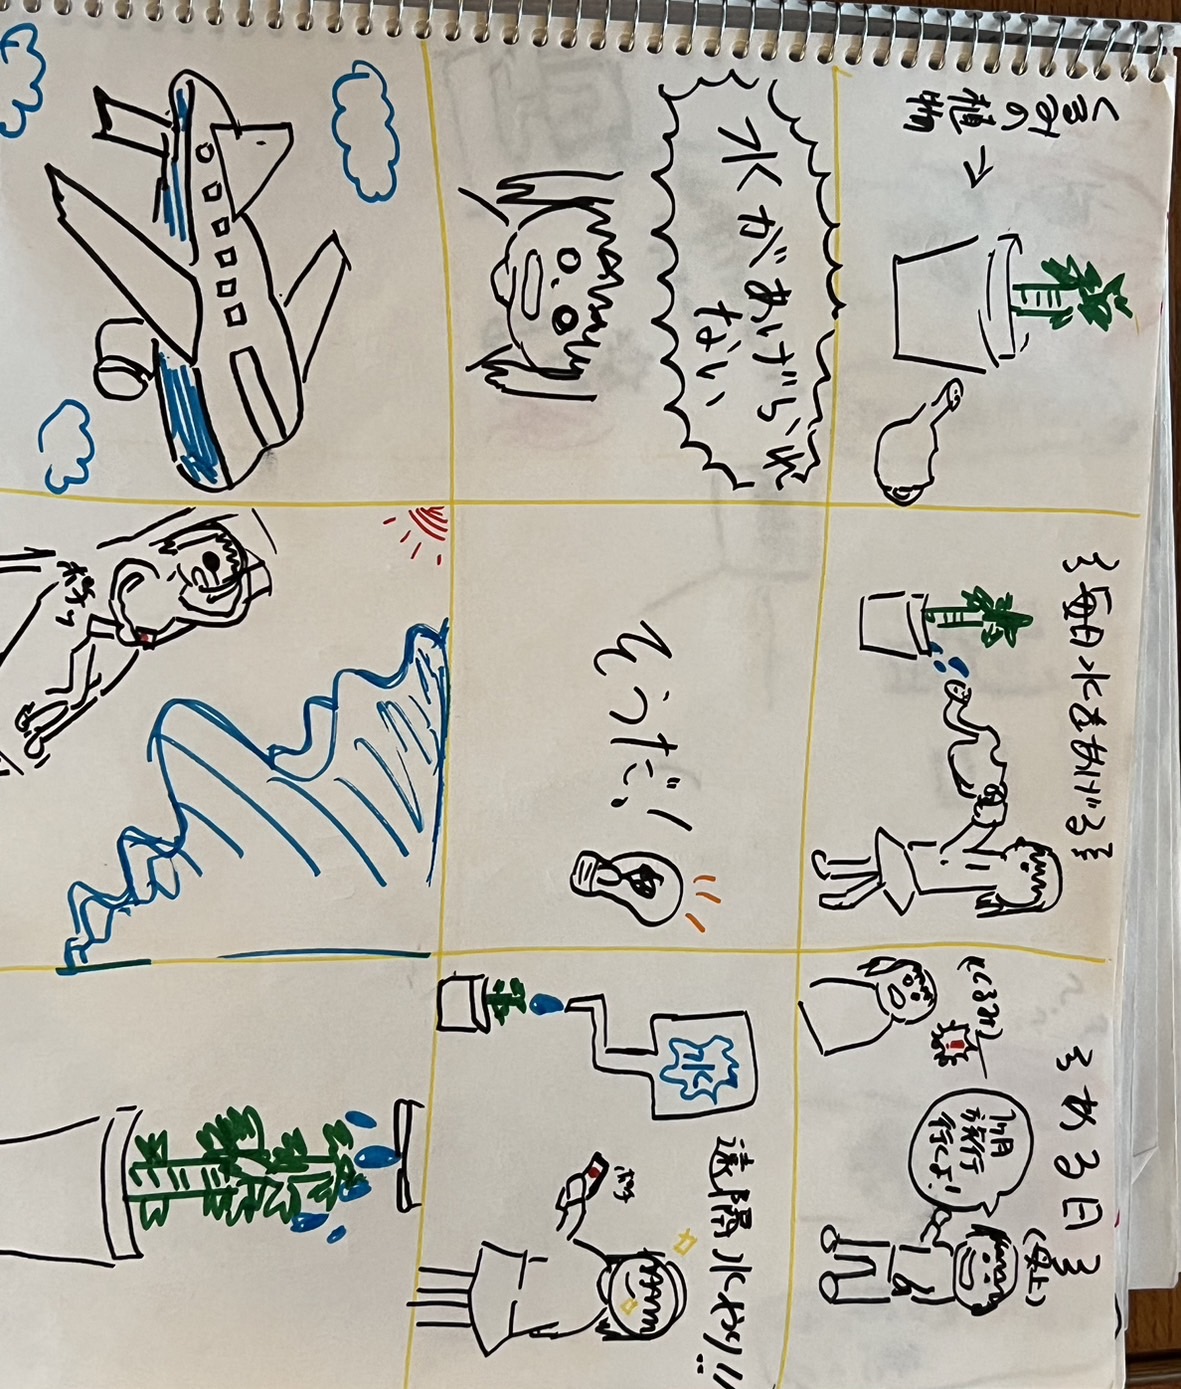 くるみの植物
毎日水をあげる
ある日
(くるみ)
1ヶ月
旅行
行くよ!
水があげられ
ない
そうだ!
遠隔水やり!!
水
ポチッ
ポチッ